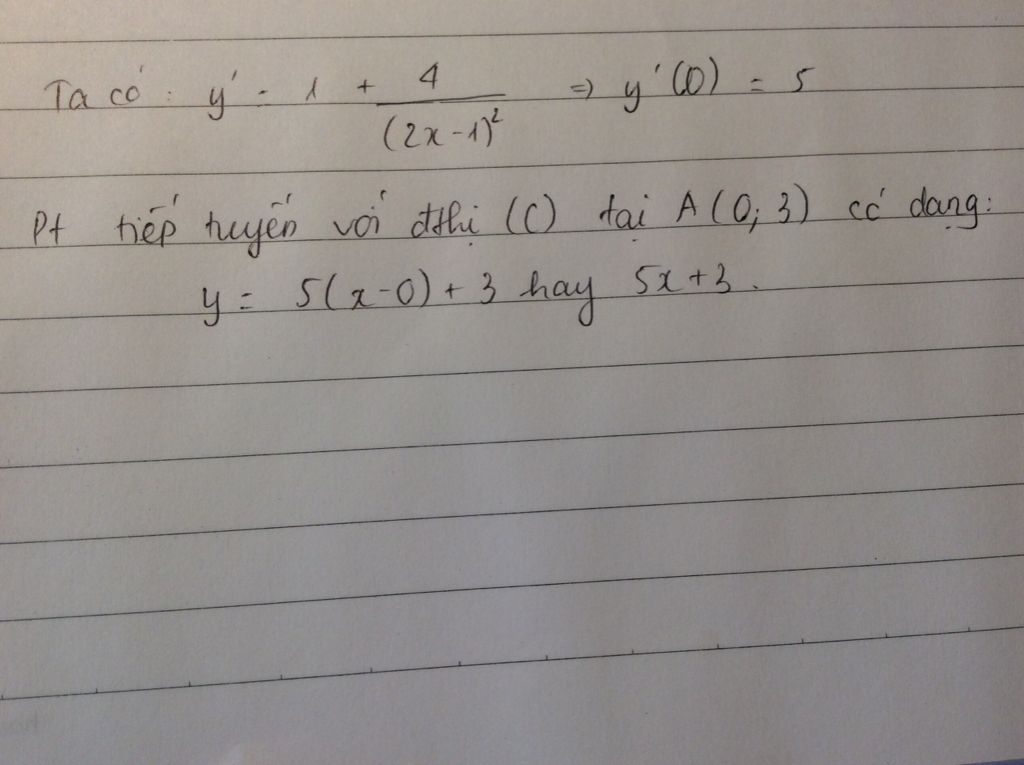 Ta có : y' = 1 + 4/(2x-1)² => y'(0) = 5
Pt tiếp tuyến với đthị (C) tại A(0; 3) có dạng:
y = 5(x-0) + 3 hay 5x+3.